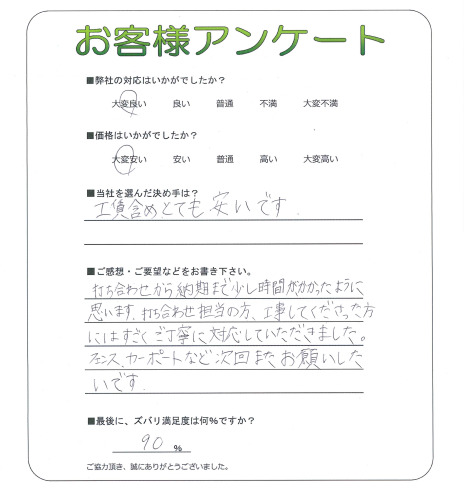 お客様アンケート
■弊社の対応はいかがでしたか？
大変良い 良い 普通 不満 大変不満
■価格はいかがでしたか？
大変安い 安い 普通 高い 大変高い
■当社を選んだ決め手は？
工賃含めとても安いです.
■ご感想・ご要望などをお書き下さい。
打ち合わせから納期まで少し時間がかかったように
思います.打ち合わせ担当の方、工事してくださった方
にはすごくご丁寧に対応していただきました。
フェンス、カーポートなど次回またお願いした
いです.
■最後に、ズバリ満足度は何%ですか？
90 %
ご協力頂き、誠にありがとうございました。